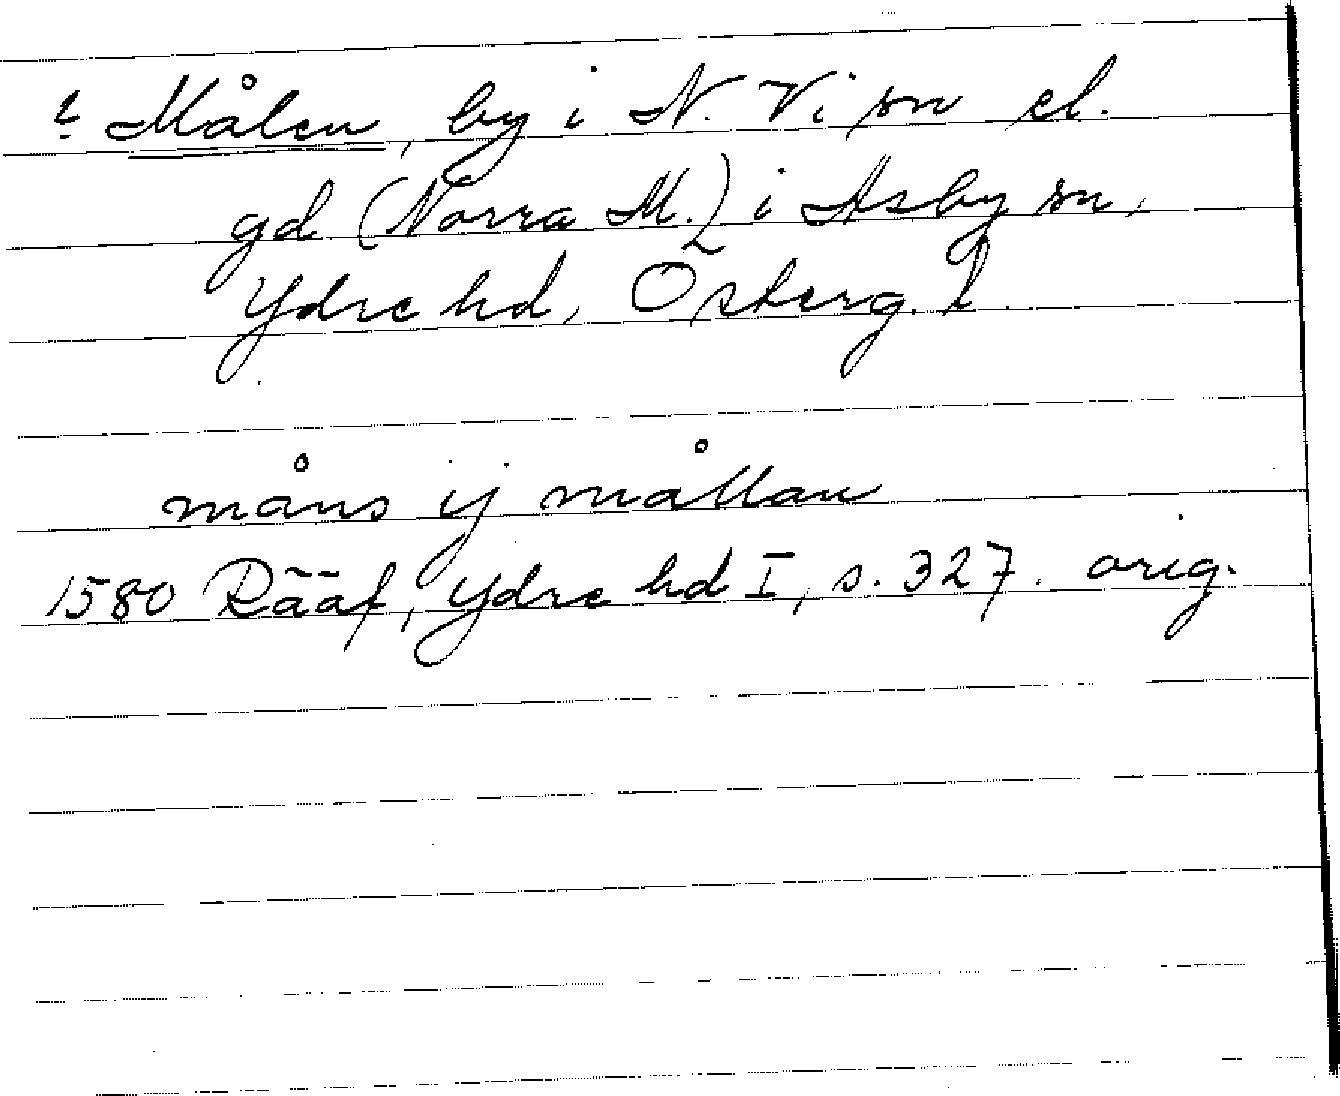 ? Målen, by i N. Vi sn el.
gd (Norra M.) i Asby sn,
Ydre hd, Österg. l.
måns ij mållan
1580 Rääf, Ydre hd I, s. 327. orig.